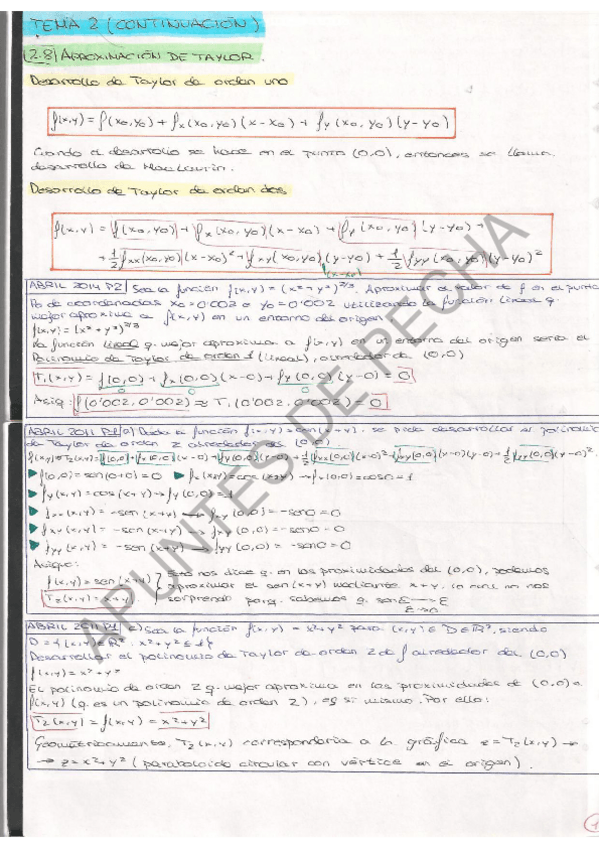 TEMA 2 (CONTINUACIÓN)
(2.8) APROXIMACIÓN DE TAYLOR.
Desarrollo de Taylor de orden uno
f(x,y) = f(x0,y0) + fx(x0,y0)(x-x0) + fy(x0,y0)(y-y0)
Cuando el desarrollo se hace en el punto (0,0), entonces se llama
desarrollo de MacLaurin.
Desarrollo de Taylor de orden dos
f(x,y) = f(x0,y0) + fx(x0,y0)(x-x0) + fy(x0,y0)(y-y0) +
+ 1/2 fxx(x0,y0)(x-x0)² + fxy(x0,y0)(y-y0) + 1/2 fyy(x0,y0)(y-y0)²
(x-x0)
ABRIL 2014 P2) Sea la función f(x,y) = (x²+y²)^2/3. Aproximar el valor de f en el punto
P0 de coordenadas x0=0'002 e y0=0'002 utilizando la función lineal q.
mejor aproxima a f(x,y) en un entorno del origen
f(x,y) = (x²+y²)^2/3
La función lineal q. mejor aproxima a f(x,y) en un entorno del origen sería el
Polinomio de Taylor de orden 1 (lineal), alrededor de (0,0)
T1(x,y) = f(0,0) + fx(0,0)(x-0) + fy(0,0)(y-0) = 0
0 0 0
Asíq: f(0'002,0'002) ≈ T1(0'002,0'002) = 0
ABRIL 2011 P1) Dada la función f(x,y) = sen(x+y). se pide desarrollar el polinomio
de Taylor de orden 2 alrededor del (0,0)
▶ f(0,0) = sen(0+0) = 0 ▶ fx(x,y) = cos(x+y) → fx(0,0) = cos0 = 1
▶ fy(x,y) = cos(x+y) → fy(0,0) = 1
▶ fxx(x,y) = -sen(x+y) → fxx(0,0) = -sen0 = 0
▶ fxy(x,y) = -sen(x+y) → fxy(0,0) = -sen0 = 0
▶ fyy(x,y) = -sen(x+y) → fyy(0,0) = -sen0 = 0
Asíque:
f(x,y) = sen(x+y) } Esto nos dice q. en las proximidades del (0,0), podemos
aproximar el sen(x+y) mediante x+y, lo cual no nos
T2(x,y) = x+y sorprende porq. sabemos q. senε → ε
ε→0
ABRIL 2011 P1 Sea la función f(x,y) = x²+y² para (x,y) ∈ D ∈ R², siendo
D = {(x,y) ∈ R² : x²+y² ≤ 1}
Desarrollar el polinomio de Taylor de orden 2 de f alrededor del (0,0)
f(x,y) = x²+y²
El polinomio de orden 2 q. mejor aproxima en las proximidades de (0,0) a
f(x,y) (q. es un polinomio de orden 2), es si mismo. Por ello:
T2(x,y) = f(x,y) = x²+y²
Geométricamente, T2(x,y) correspondería a la gráfica z = T2(x,y) →
→ z = x²+y² (paraboloide circular con vértice en el origen).
1
APUNTES DE PECHA